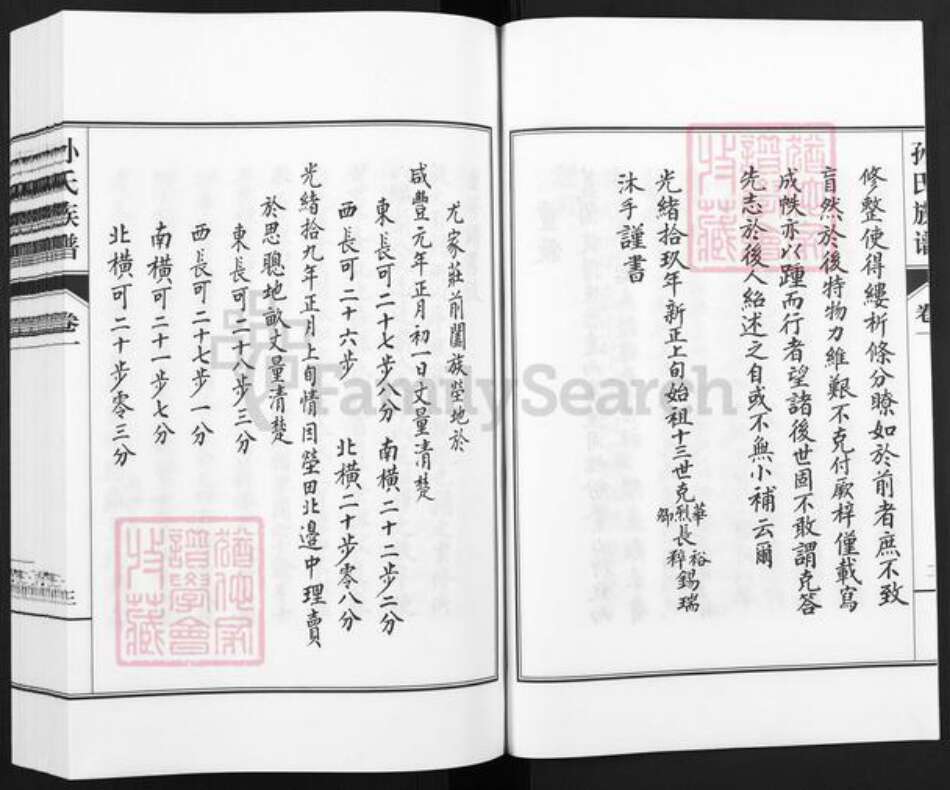 修整使得縷析條分瞭如於前者庶不致
盲然於後特物力維艱不克付厥梓僅載寫
成帙亦以踵而行者望諸後世固不敢謂克答
先志於後人紹述之自或不無小補云爾
光緒拾玖年新正上旬始祖十三世克 華烈卿 長 裕稡 錫瑞
沐手謹書
孙氏族谱
卷一
尤家莊前闔族塋地於
咸豐元年正月初一日丈量清楚
東長可二十七步八分 南橫二十二步二分
西長可二十六步 北橫二十步零八分
光緒拾九年正月上旬情因塋田北邊中理賣
於思聰地畝丈量清楚
東長可二十八步三分
西長可二十七步一分
南橫可二十一步七分
北橫可二十步零三分
孙氏族谱
卷一
三
FamilySearch